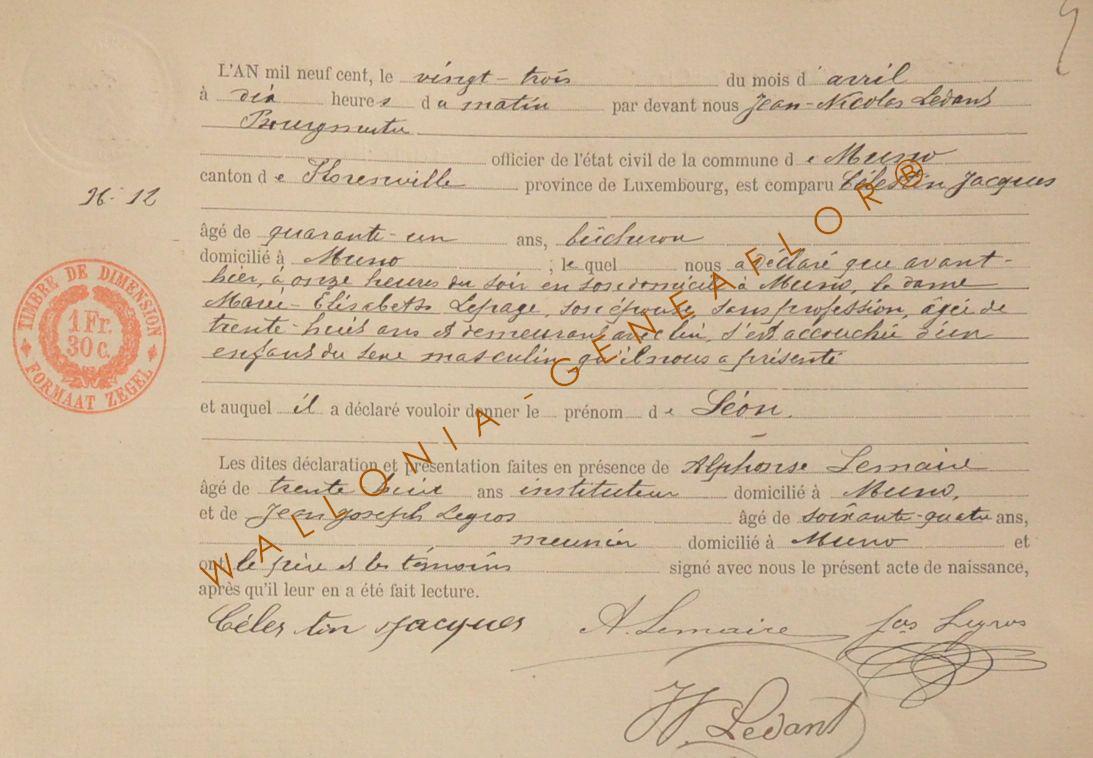 L'AN mil neuf cent, le vingt-trois du mois d'avril
à dix heures du matin par devant nous Jean-Nicolas Ledant
Bourgmestre
officier de l'état civil de la commune de Muno
canton de Florenville province de Luxembourg, est comparu Célestin Jacques
N° 12
âgé de quarante-un ans, bûcheron
domicilié à Muno ; lequel nous a déclaré que avant-
hier, à onze heures du soir en son domicile à Muno, la dame
Marie-Élisabeth Lepage, son épouse, sans profession, âgée de
trente-huit ans et demeurant avec lui, s'est accouchée d'un
enfant du sexe masculin qu'il nous a présenté
et auquel il a déclaré vouloir donner le prénom de Léon.
Les dites déclaration et présentation faites en présence de Alphonse Lemaire
âgé de trente ans instituteur domicilié à Muno,
et de Jean Joseph Legros âgé de soixante-quatre ans,
meunier domicilié à Muno et
ont le père et les témoins signé avec nous le présent acte de naissance,
après qu'il leur en a été fait lecture.
Célestin Jacques A. Lemaire Jos Legros
Ledant
TIMBRE DE DIMENSION
1 Fr.
30 c.
FORMAAT ZEGEL
WALLONIA-GENEAFLOR®